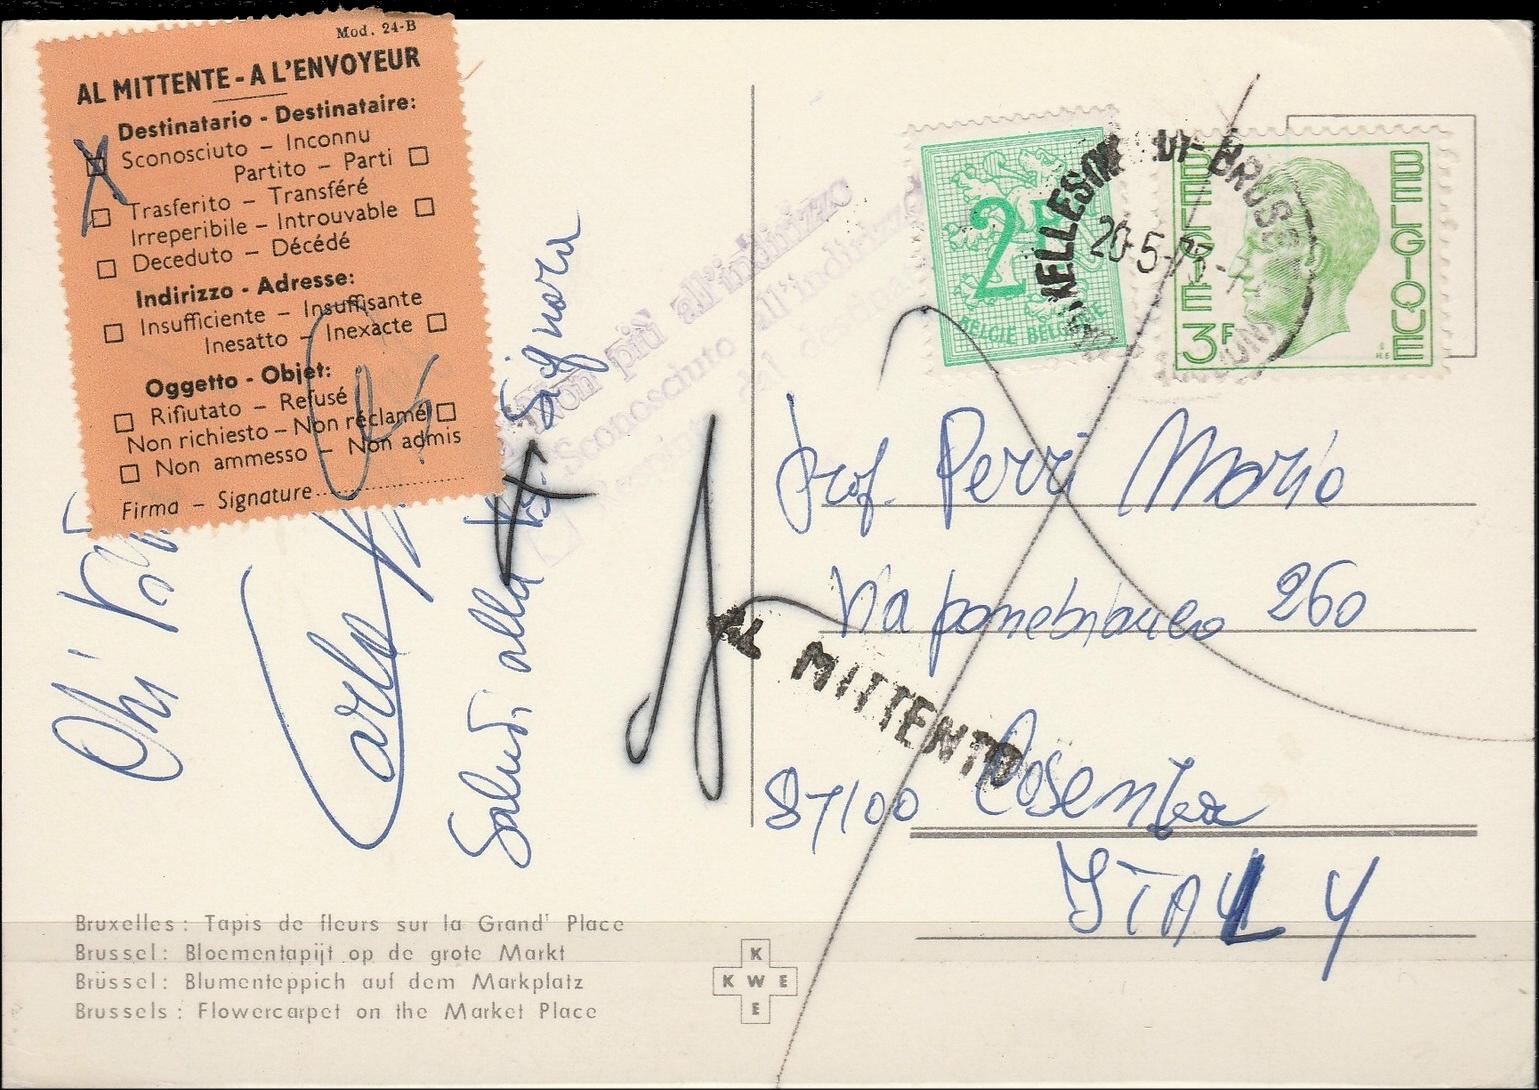 Mod. 24-B
AL MITTENTE - A L'ENVOYEUR
Destinatario - Destinataire:
Sconosciuto - Inconnu
Partito - Parti
Trasferito - Transféré
Irreperibile - Introuvable
Deceduto - Décédé
Indirizzo - Adresse:
Insufficiente - Insuffisante
Inesatto - Inexacte
Oggetto - Objet:
Rifiutato - Refusé
Non richiesto - Non réclamé
Non ammesso - Non admis
Firma - Signature
Carlo
Saluti alla Signora
Non più all'indirizzo
Sconosciuto all'indirizzo
AL MITTENTE
2F
BELGIE BELGIQUE
20-5-75
BELGIE
BELGIQUE
3F
Prof. Perri Mario
Via panebianco 260
87100 Cosenza
ITALY
Bruxelles: Tapis de fleurs sur la Grand' Place
Brussel: Bloementapijt op de grote Markt
Brüssel: Blumenteppich auf dem Markplatz
Brussels: Flowercarpet on the Market Place
K
K W E
E